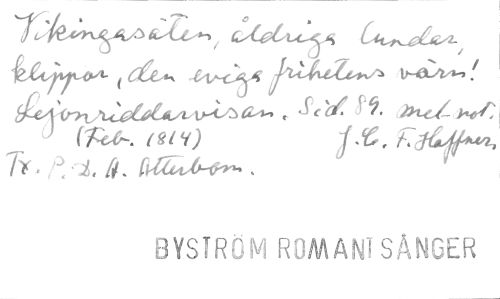 Vikingasäten, åldriga lundar,
klippor, den eviga frihetens värn!
Lejonriddarvisan. Sid. 89. mel-not.
(Feb. 1814) J. C. F. Haffner,
Tx. P. D. A. Atterbom.
BYSTRÖM ROMANT SÅNGER